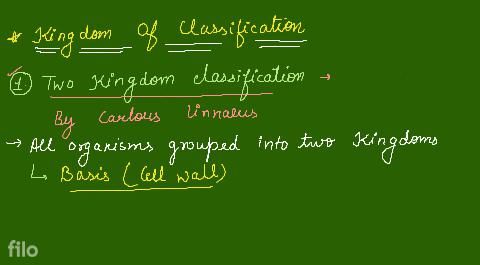 * Kingdom Of Classification
① Two Kingdom classification →
By Carlous Linnaeus
→ All organisms grouped into two Kingdoms
↳ Basis (Cell wall)
filo